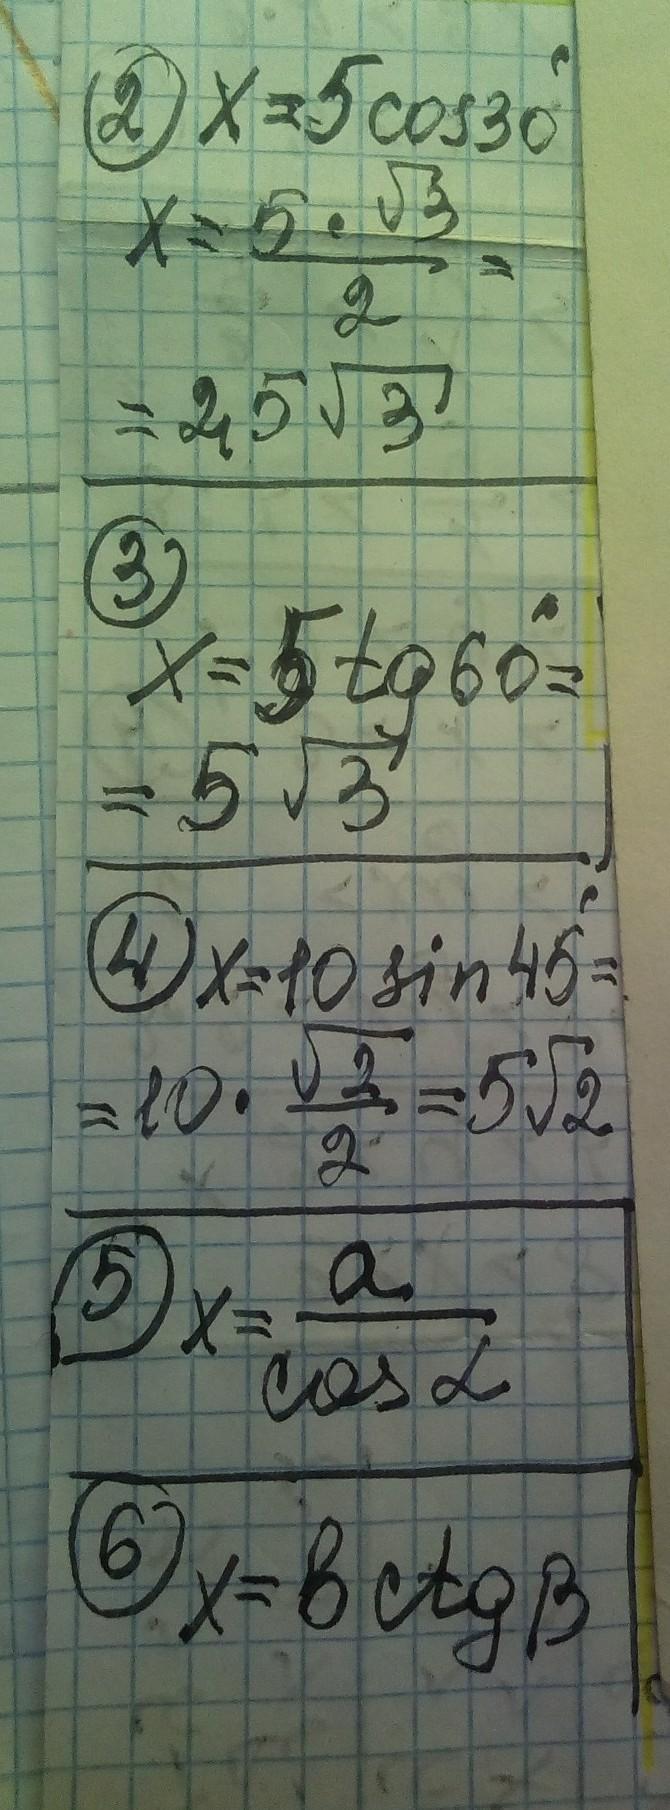 ② x = 5 cos 30°
x = (5 · √3) / 2 =
= 2,5 √3
③
x = 5 tg 60° =
= 5 √3
④ x = 10 sin 45° =
= 10 · √2 / 2 = 5√2
⑤ x = a / cos α
⑥ x = b ctg β